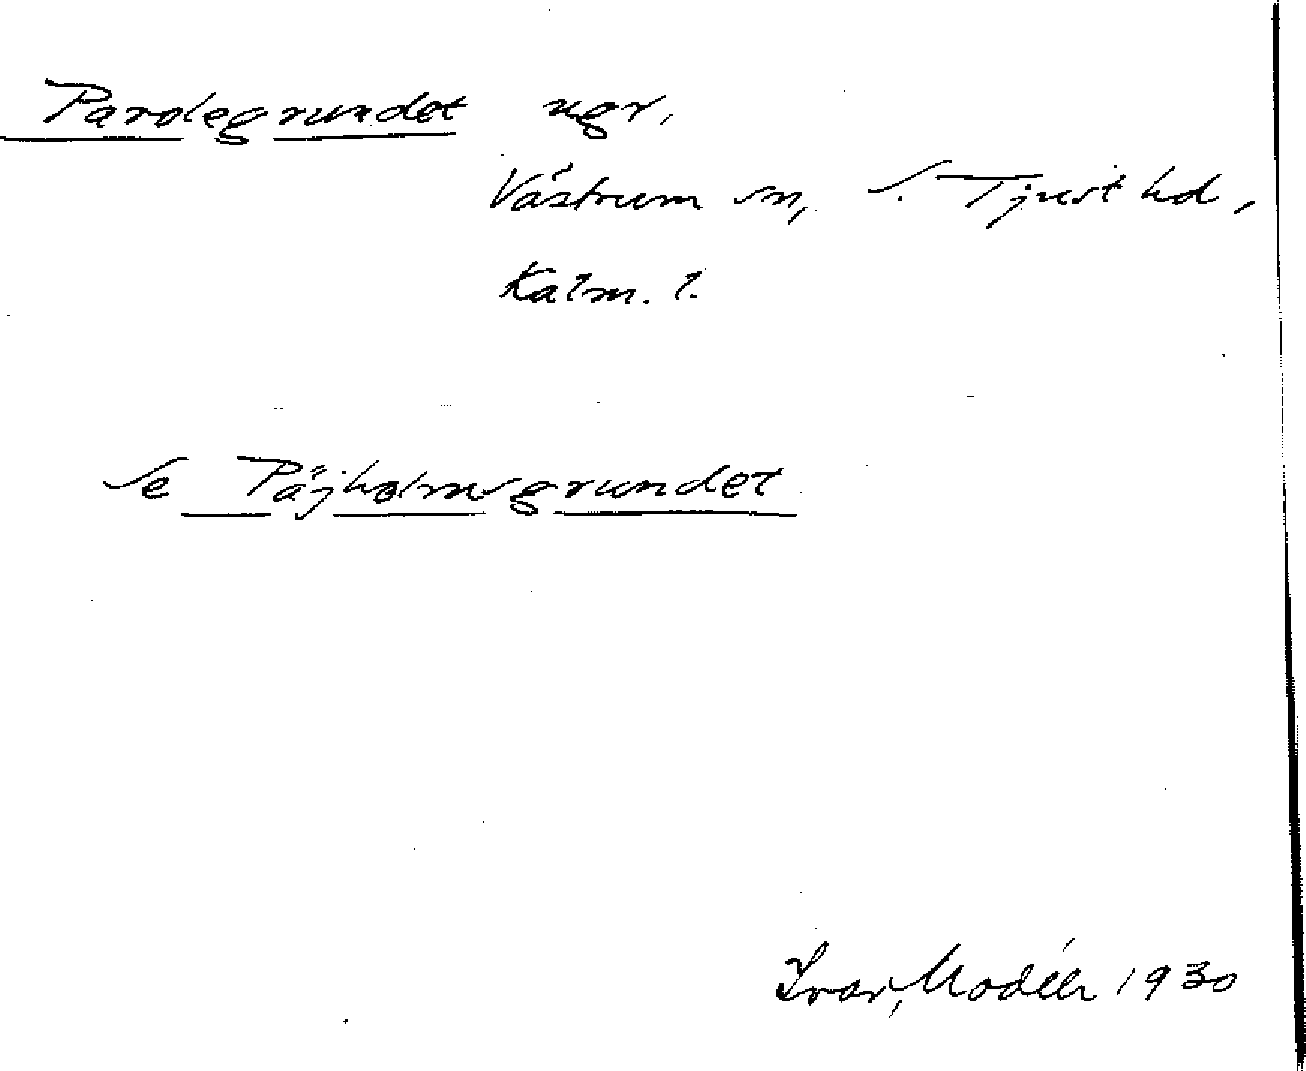 Parolegrundet ugr.
Västrum sn, S. Tjust hd,
Kalm. l.
Se Påjholmsgrundet
Ivar Modéer 1930